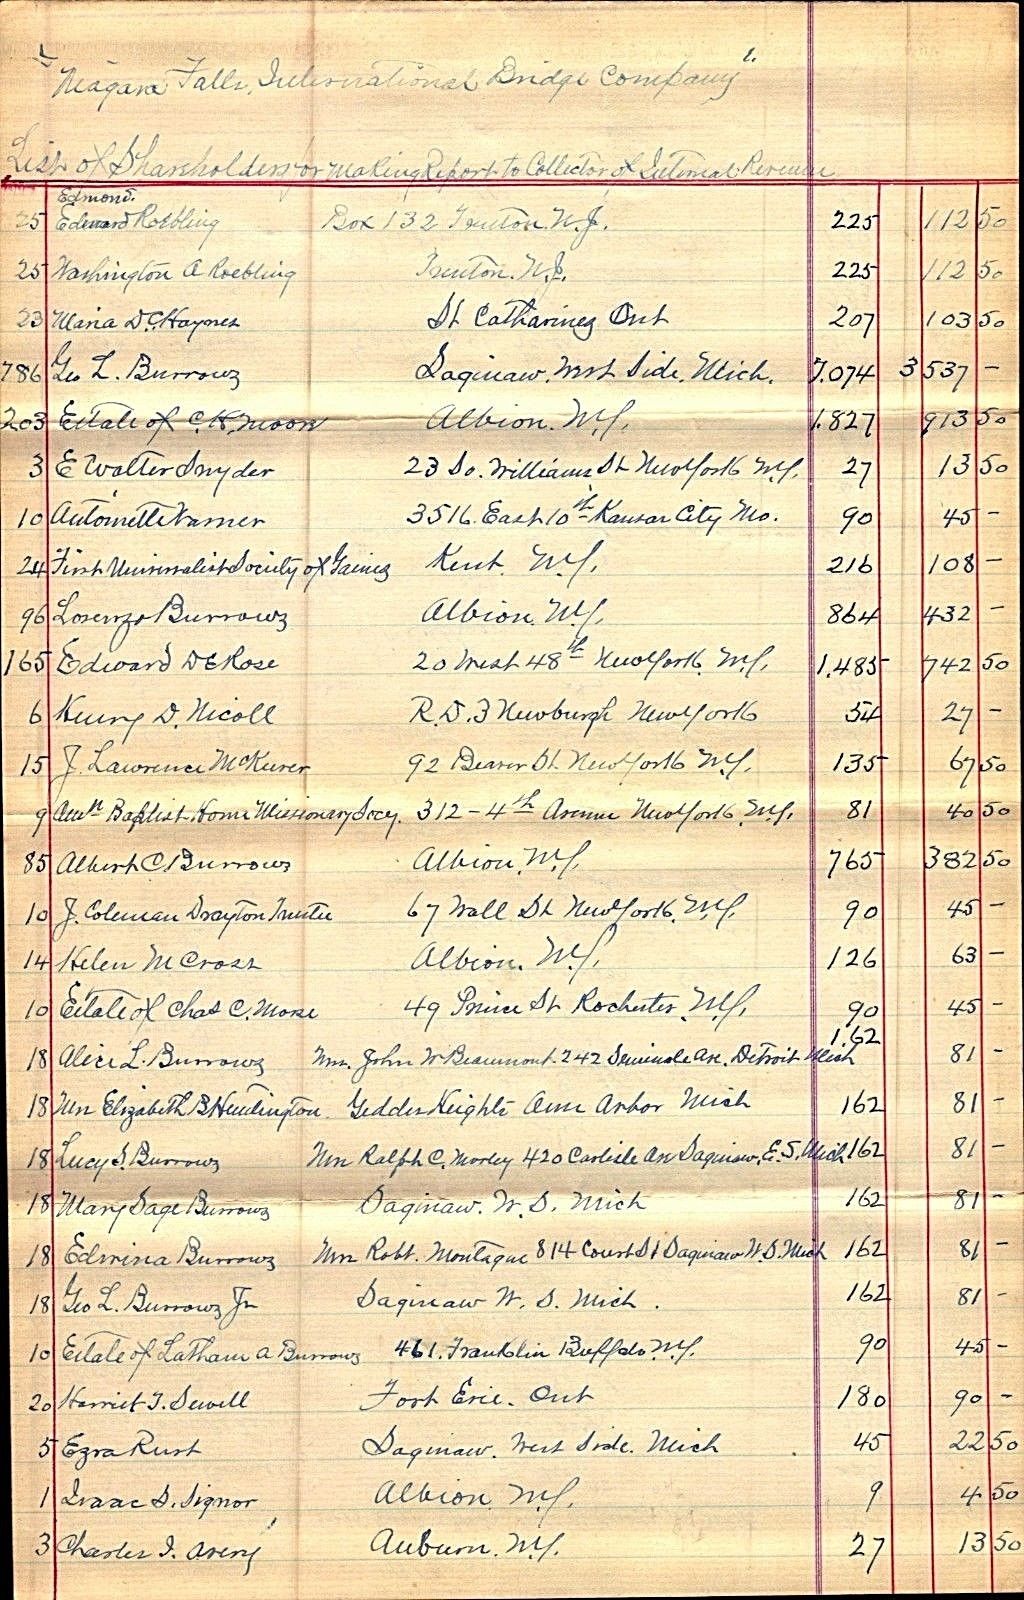 1.
"Niagara Falls, International Bridge Company"
List of Shareholders for making Report to Collector of Internal Revenue
Edmond.
25 Edward Roebling Box 132 Trenton N.J. 225 112 50
25 Washington A Roebling Trenton. N.J. 225 112 50
23 Maria D.C. Haynes St Catharines Ont 207 103 50
786 Geo L. Burrows Saginaw. West Side. Mich. 7.074 3 537 -
203 Estate of C. H. Moore Albion. N.Y. 1.827 913 50
3 E Walter Snyder 23 So. William St New York N.Y. 27 13 50
10 Antoinette Varner 3516. East 10th Kansas City Mo. 90 45 -
24 First Universalist Society of Gaines Kent. N.Y. 216 108 -
96 Lorenzo Burrows Albion. N.Y. 864 432 -
165 Edward DeRose 20 West 48th New York. N.Y. 1.485 742 50
6 Henry D. Nicoll R.D. 3 Newburgh New York 54 27 -
15 J. Lawrence McKeever 92 Beaver St. New York N.Y. 135 67 50
9 Amn Baptist Home Missionary Socy. 312 - 4th Avenue New York. N.Y. 81 40 50
85 Albert C. Burrows Albion. N.Y. 765 382 50
10 J. Coleman Drayton Trustee 67 Wall St New York. N.Y. 90 45 -
14 Helen M Cross Albion. N.Y. 126 63 -
10 Estate of Chas C. Morse 49 Prince St Rochester. N.Y. 90 45 -
18 Alice L. Burrows Mrs. John W Beaumont. 242 Seminole Ave. Detroit Mich 1.62 81 -
18 Mrs Elizabeth B. Huntington Geddes Heights Ann Arbor Mich 162 81 -
18 Lucy S. Burrows Mrs Ralph C. Morley 420 Carlisle Av Saginaw, E. S. Mich 162 81 -
18 Mary Sage Burrows Saginaw. W. S. Mich 162 81 -
18 Edwina Burrows Mrs Robt. Montague 814 Court St Saginaw W. S. Mich 162 81 -
18 Geo L. Burrows Jr Saginaw W. S. Mich. 162 81 -
10 Estate of Latham A Burrows 461. Franklin Buffalo N.Y. 90 45 -
20 Harriet T. Sewell Fort Erie. Ont 180 90 -
5 Ezra Rust Saginaw. West Side. Mich 45 22 50
1 Isaac S. Signor Albion N.Y. 9 4 50
3 Charles I. Avery Auburn. N.Y. 27 13 50